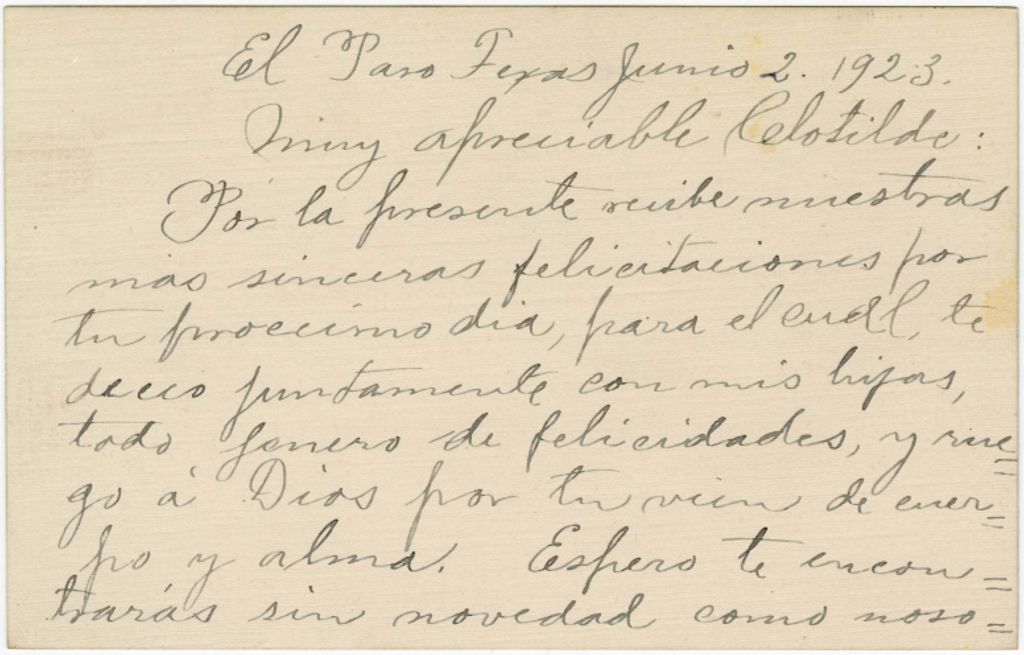 El Paso Texas Junio 2. 1923.
Muy apreciable Clotilde:
Por la presente recibe nuestras
mas sinceras felicitaciones por
tu proccimo dia, para el cual, te
deceo juntamente con mis hijas,
todo jenero de felicidades, y rue=
go á Dios por tu vien de cuer=
po y alma. Espero te encon=
trarás sin novedad como noso=